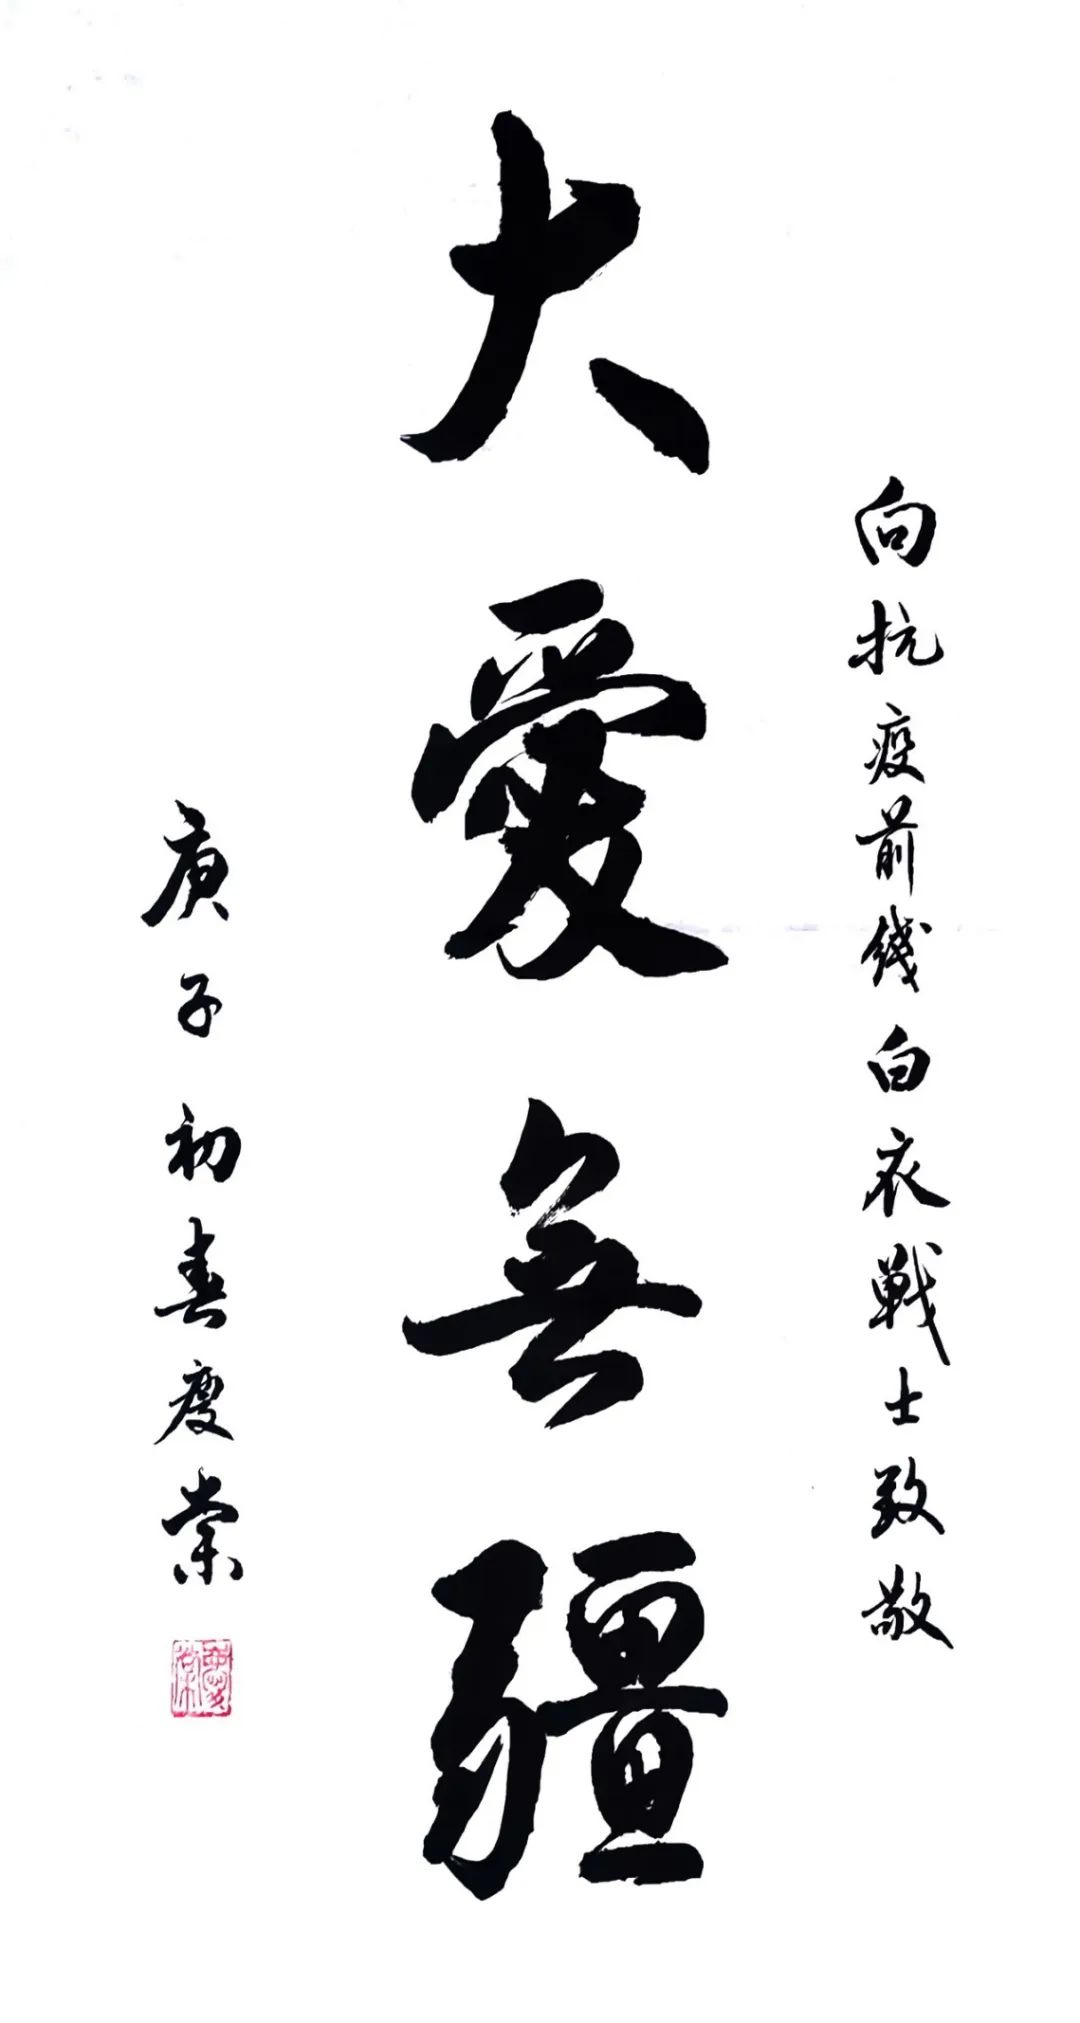 向抗疫前线白衣戰士致敬
大愛無疆
庚子初春慶棠